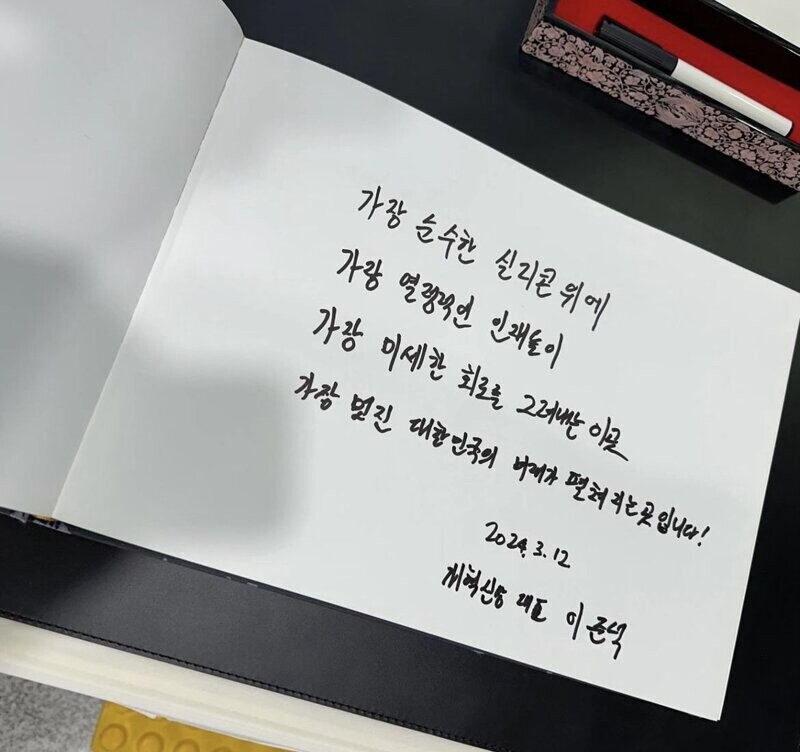 가장 순수한 실리콘 위에
가장 열정적인 인재들이
가장 미세한 회로를 그려내는 이곳
가장 멋진 대한민국의 미래가 펼쳐지는 곳입니다!
2024. 3. 12
개혁신당 대표 이준석